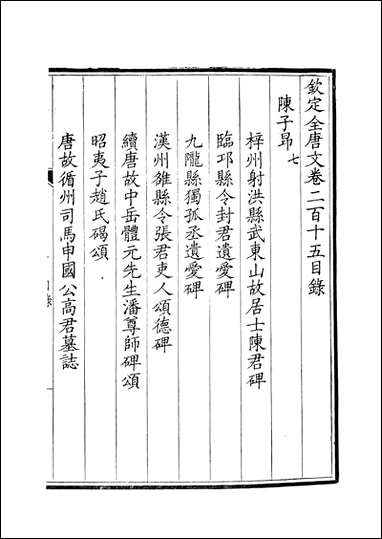 欽定全唐文卷二百十五目錄
陳子昂七
梓州射洪縣武東山故居士陳君碑
臨邛縣令封君遺愛碑
九隴縣獨孤丞遺愛碑
漢州雒縣令張君吏人頌德碑
續唐故中岳體元先生潘尊師碑頌
昭夷子趙氏碣頌
唐故循州司馬申國公高君墓誌